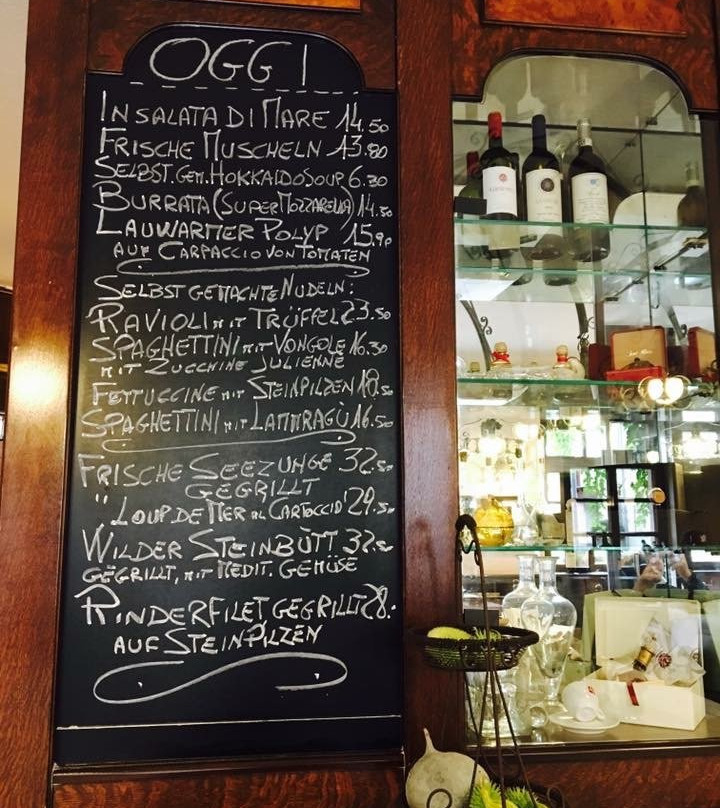 OGGI
INSALATA DI MARE 14.50
FRISCHE MUSCHELN 13.80
SELBST.GEM.HOKKAIDOSOUP 6.30
BURRATA (SUPER MOZZARELLA) 14.50
LAUWARMER POLYP 15.90
AUF CARPACCIO VON TOMATEN
SELBSTGEMACHTE NUDELN:
RAVIOLI MIT TRÜFFEL 23.50
SPAGHETTINI MIT VONGOLE 16.30
MIT ZUCCHINE JULIENNE
FETTUCCINE MIT STEINPILZEN 18.50
SPAGHETTINI MIT LAMMRAGÙ 16.50
FRISCHE SEEZUNGE 32.50
GEGRILLT
" LOUP DE MER AL CARTOCCIO' 29.50
WILDER STEINBÜTT 32.50
GEGRILLT, MIT MEDIT. GEMÜSE
RINDERFILET, GEGRILLT 28.
AUF STEINPILZEN